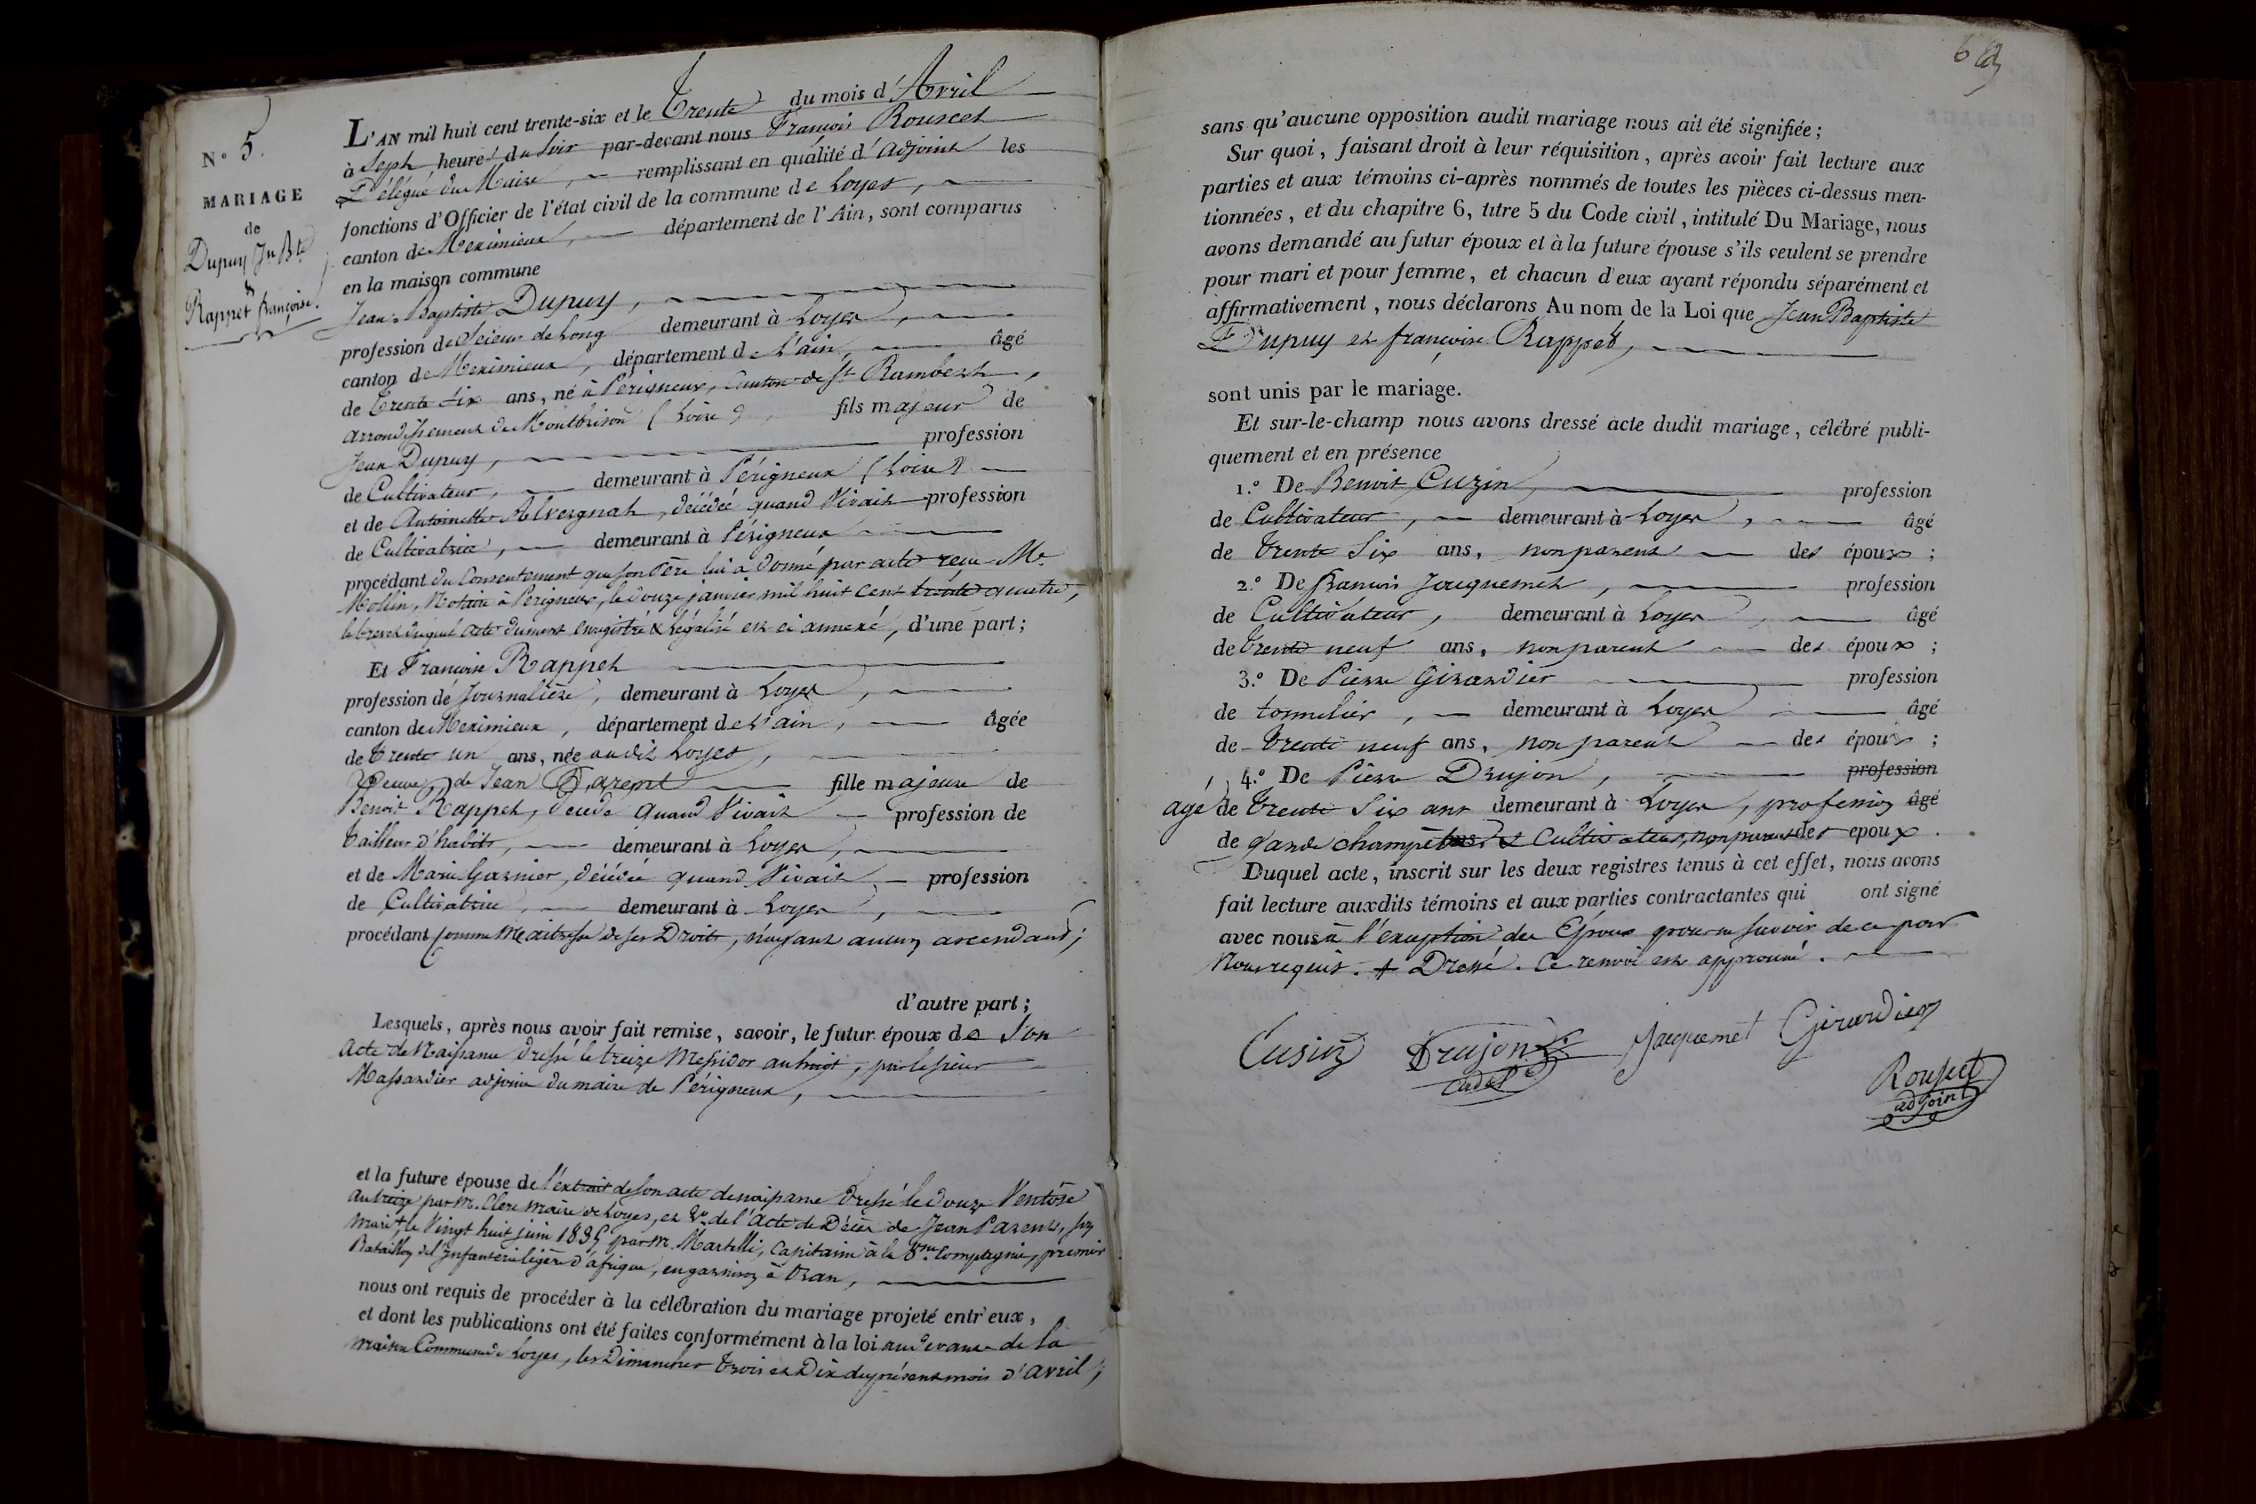 N° 5.
MARIAGE
de
Dupuy Jn Bte
&
Rappet françoise.
L'AN mil huit cent trente-six et le Trente du mois d'Avril
à Sept heures du Soir par-devant nous François Rousset
Délégué du Maire, remplissant en qualité d'Adjoint les
fonctions d'Officier de l'état civil de la commune de Loyes,
canton de Meximieux, département de l'Ain, sont comparus
en la maison commune
Jean-Baptiste Dupuy,
profession de Scieur de Long demeurant à Loyes,
canton de Meximieux, département de L'ain, âgé
de Trente Six ans, né à Périgneux, Canton de St Rambert,
arrondissement de Montbrison (Loire), fils majeur de
Jean Dupuy, profession
de Cultivateur, demeurant à Périgneux (Loire)
et de Antoinette Alvergnat, décédée quand Vivait profession
de Cultivatrice, demeurant à Périgneux
procédant du Consentement que son Père lui a donné par acte reçu Me
Mollin, Notaire à Périgneux, le douze janvier mil huit cent trente quatre,
le brevet duquel acte dument enregistré & légalisé est ci annexé, d'une part;
Et Françoise Rappet
profession de Journalière, demeurant à Loyes,
canton de Meximieux, département de L'ain, âgée
de Trente un ans, née audit Loyes,
Veuve de Jean Parent fille majeure de
Benoit Rappet, décédé quand Vivait profession de
Tailleur d'habits, demeurant à Loyes,
et de Marie Garnier, décédée quand Vivait, profession
de Cultivatrice, demeurant à Loyes,
procédant Comme Maitresse de ses Droits, n'ayant aucun ascendant;
d'autre part;
Lesquels, après nous avoir fait remise, savoir, le futur époux de Son
Acte de Naissance dressé le treize Messidor an huit, par le sieur
Massardier adjoint du maire de Périgneux,
et la future épouse de l'extrait de son acte de naissance dressé le douze Ventôse
an treize par M. Clerc maire de Loyes, et 2° de l'Acte de Décès de Jean Parent, son
mari + le Vingt huit juin 1835 par M. Martelli, Capitaine à la 8me Compagnie, premier
Bataillon de l'Infanterie légère d'afrique, en garnison à Oran,
nous ont requis de procéder à la célébration du mariage projeté entr'eux,
et dont les publications ont été faites conformément à la loi au devant de la
maison Commune de Loyes, les Dimanches trois et Dix du présent mois d'avril,
sans qu'aucune opposition audit mariage nous ait été signifiée;
Sur quoi, faisant droit à leur réquisition, après avoir fait lecture aux
parties et aux témoins ci-après nommés de toutes les pièces ci-dessus men-
tionnées, et du chapitre 6, titre 5 du Code civil, intitulé Du Mariage, nous
avons demandé au futur époux et à la future épouse s'ils veulent se prendre
pour mari et pour femme, et chacun d'eux ayant répondu séparément et
affirmativement, nous déclarons Au nom de la Loi que Jean Baptiste
Dupuy et françoise Rappet,
sont unis par le mariage.
Et sur-le-champ nous avons dressé acte dudit mariage, célébré publi-
quement et en présence
1.° De Benoit Cuzin, profession
de Cultivateur, demeurant à Loyes, âgé
de Trente Six ans, non parent des époux;
2.° De François Jacquemet, profession
de Cultivateur, demeurant à Loyes, âgé
de Trente neuf ans, non parent des époux;
3.° De Pierre Girardier profession
de tonnelier, demeurant à Loyes âgé
de Trente neuf ans, non parent des époux;
4.° De Pierre Drujon, profession
agé de Trente Six ans demeurant à Loyes, profession âgé
de garde champêtre et Cultivateur, non parent des époux.
Duquel acte, inscrit sur les deux registres tenus à cet effet, nous avons
fait lecture auxdits témoins et aux parties contractantes qui ont signé
avec nous à l'exception des Epoux pour ne savoir de ce par
Nous requis. + Dressé. Ce renvoi est approuvé.
Cusin Drujon Jacquemet Girardier
cadet
Rousset
adjoint